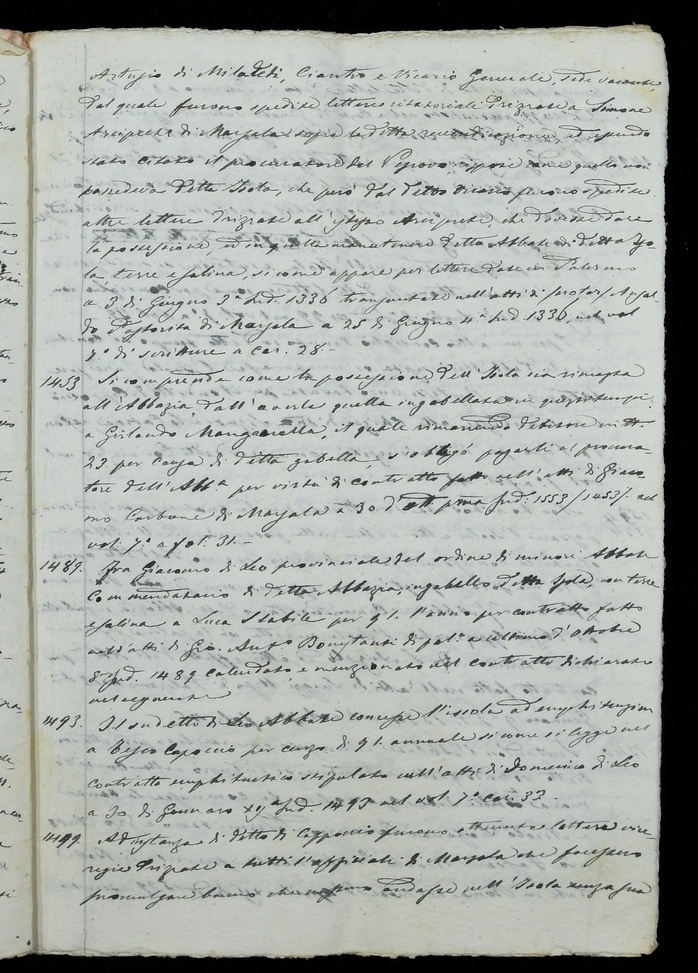 Artugio di Milateti, Ciantro e Vicario Generale, sede vacante,
dal quale furono spedite lettere citatoriali drizzate a Simone
Arciprete di Marsala sopra la detta revendicazione, ed essendo
stato citato il procuratore del Vescovo, rispose come quello non
possedeva detta Isola, che però dal detto Vicario furono spedite
altre lettere drizzate all'istesso Arciprete, che dovesse dare
la possessione, ed in quella manutenere detto Abbate di detta Iso-
la terre e salina, siccome appare per lettere date in Palermo
a 3 di Giugno 3ª Ind. 1336 transuntate nell'atti di
di Marsala a 25 di Giugno 4ª Ind. 1336, nel vol
7º di scritture a car. 28 -
1453 Si comprende come la possessione dell'Isola sia rimasta
all'Abbazia, dall'averla quella ingabellata in
a Girlando Mangiarella, il quale rimanendo debitore in
23 per causa di detta gabella, s'obligò pagarli al procura-
tore dell'Abbª per virtù di contratto fatto nell'atti di Giaco-
mo Carbone di Marsala a 30 d' pma Ind. 1553 /1453/. nel
vol. 7º a fol. 31. -
1489. Fra Giacomo di Leo provinciale del ordine di minori Abbate
Commendatario di detta Abbazia, ingabellò detta Isola, con terre
e salina a Luca Stabile per 91. l'anno per contratto fatto
nell'atti di Gio. Antº di Palº a ultimo d'Ottobre
8 Ind. 1489 calendato, e menzionato nel contratto dichiarato
nel seguente
1493. Il sudetto di Leo Abbate concesse l'isola ad emphiteusim
a Capoccio per censo di 91. annuale siccome si legge nel
contratto emphiteutico stipulato nell'atti di Domenico di Leo
a 30 di Gennaro Ind. 1493 nel vol. 7º car. 33 -
1499. Ad instanza di detto di Cappoccio furono ottenute lettere vice-
regie drizzate a tutti l'officiali di Marsala che facessero
promulgare banno che nessuno andasse nell'Isola senza sua